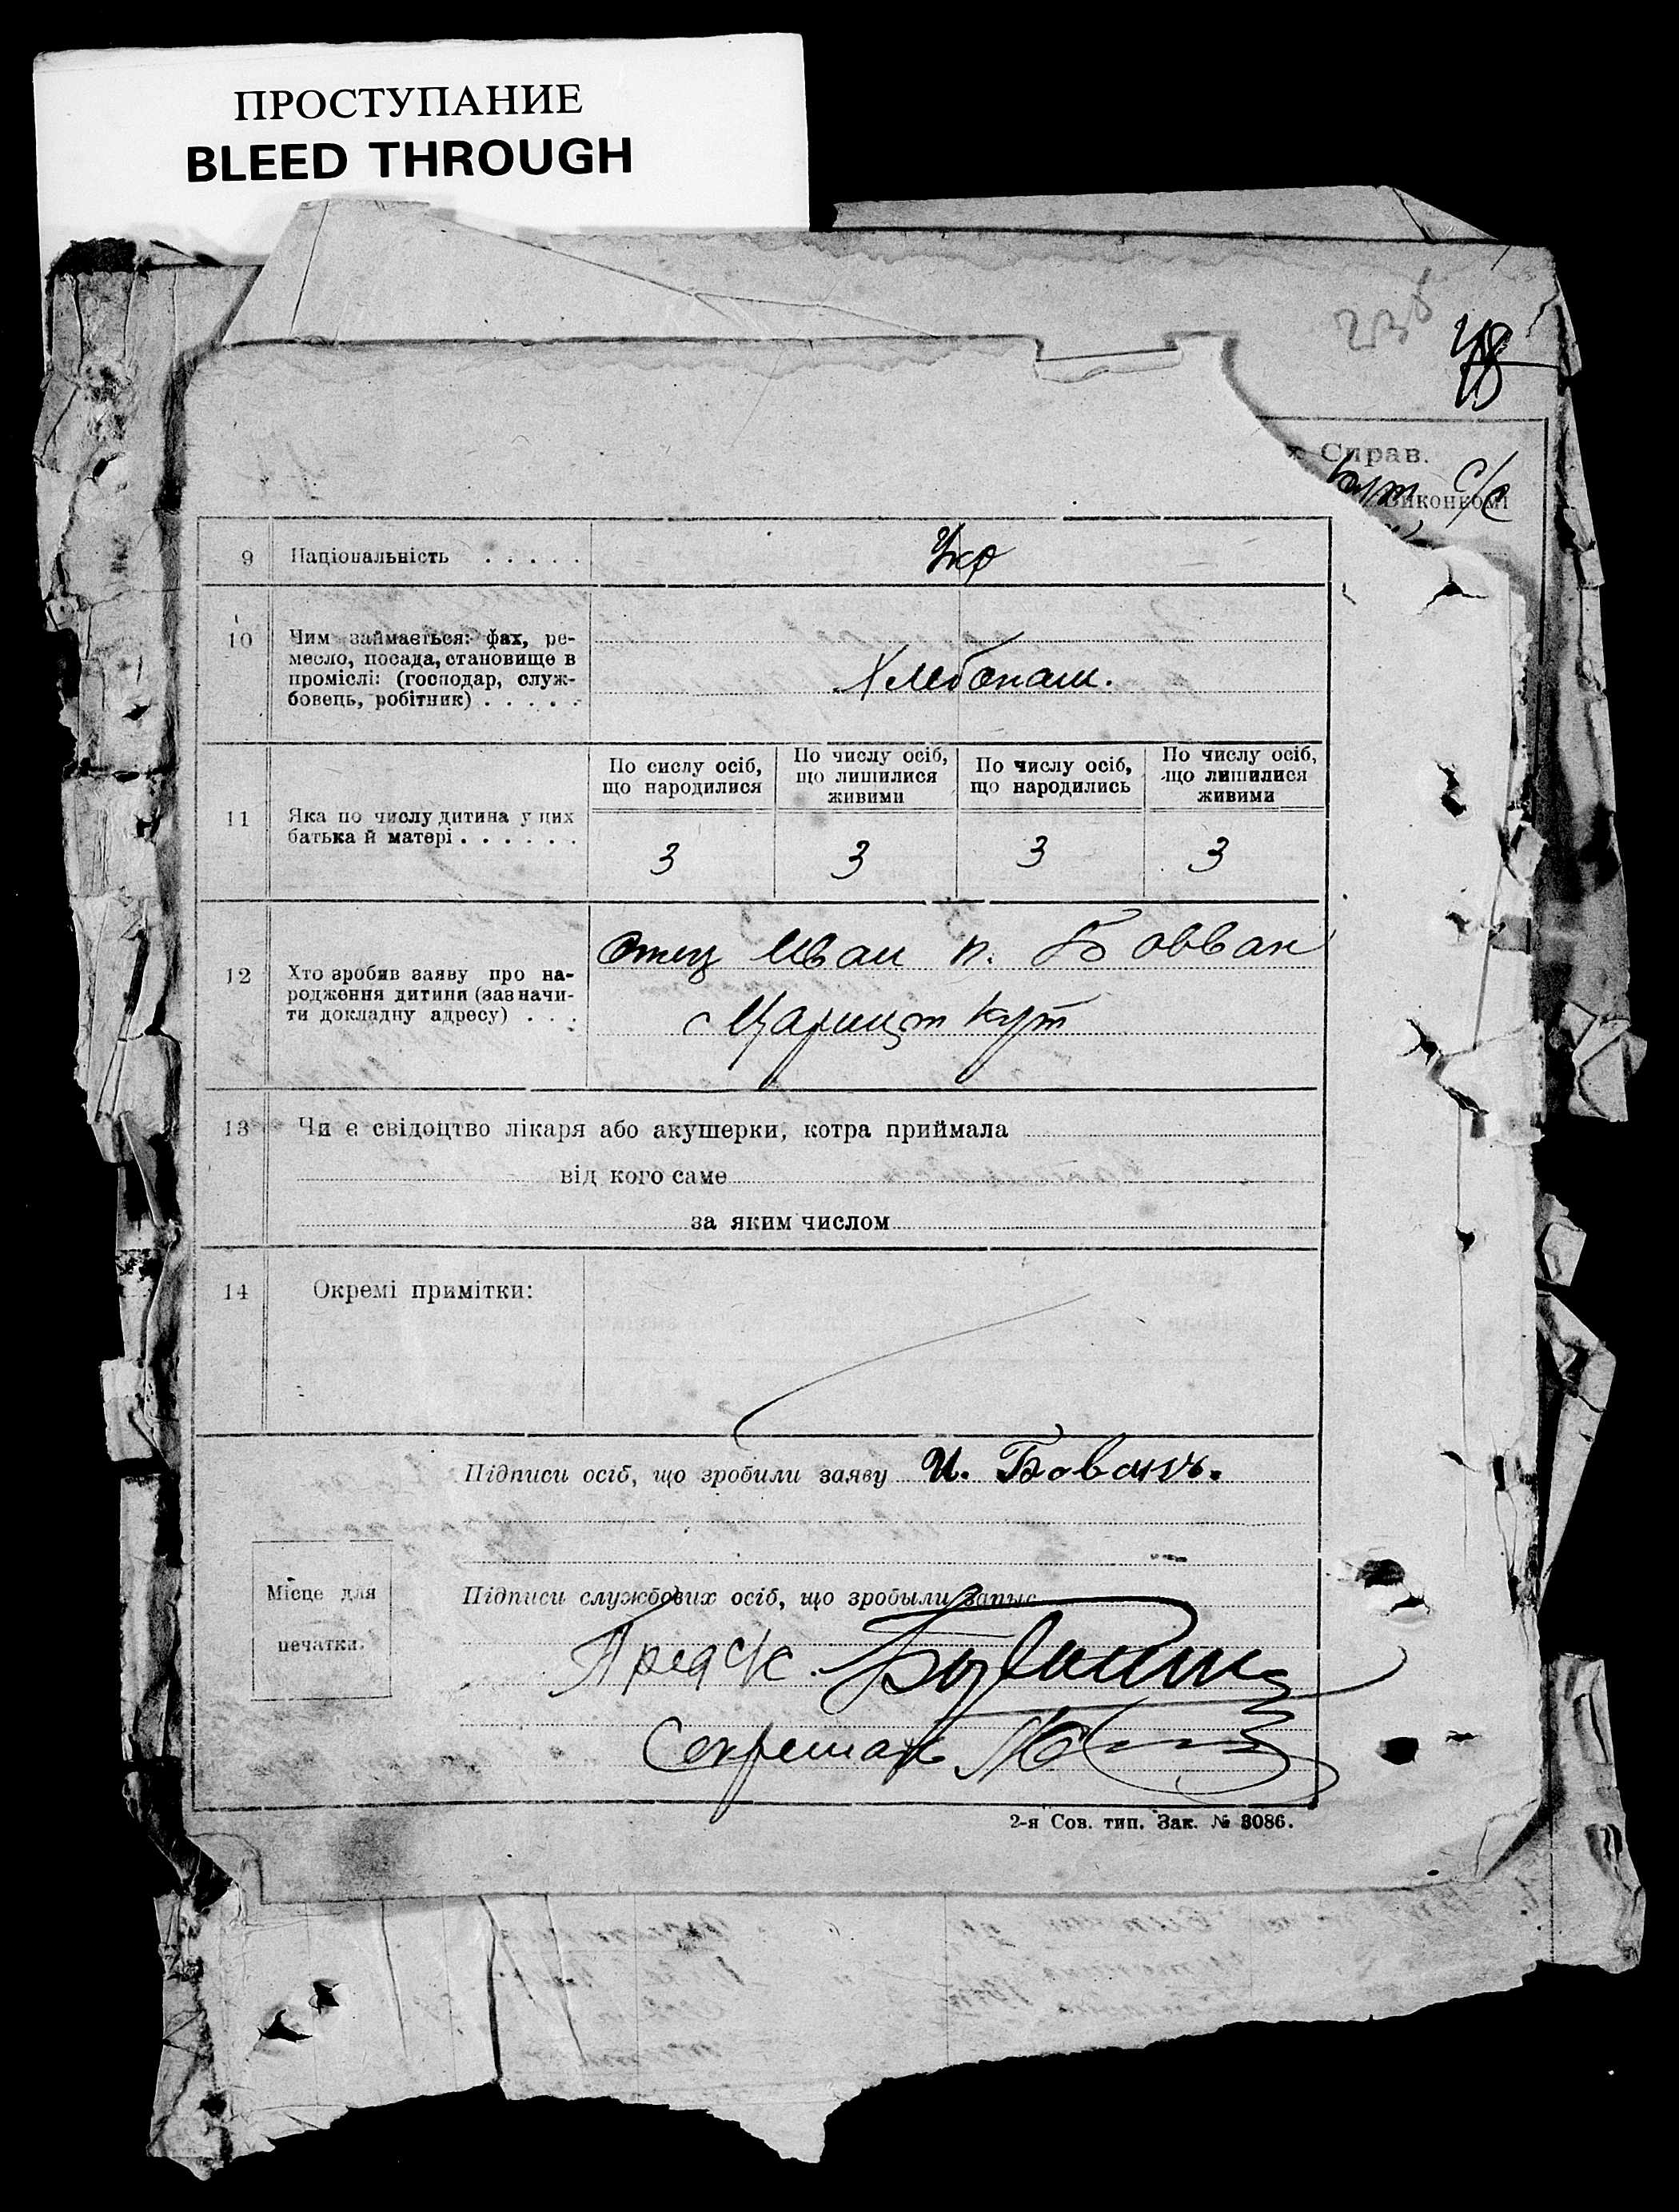 ПРОСТУПАНИЕ
BLEED THROUGH
236
Справ.
Кут с/с
Виконкомі
9 Національність . . . . . Укр
10 Чим займається: фах, ре-
месло, посада, становище в
промислі: (господар, служ-
бовець, робітник) . . . . .
Хлебопаш.
11 Яка по числу дитина у цих
батька й матері . . . . . .
По сислу осіб,
що народилися
По числу осіб,
що лишилися
живими
По числу осіб,
що народились
По числу осіб,
що лишилися
живими
3 3 3 3
12 Хто зробив заяву про на-
родження дитини (зазначи-
ти докладну адресу) . . .
Отец Иван п. Бовван
с Царицит Кут
13 Чи є свідоцтво лікаря або акушерки, котра приймала
від кого саме
за яким числом
14 Окремі примітки:
Підписи осіб, що зробили заяву И. Бованъ.
Місце для
печатки.
Підписи службових осіб, що зробыли запыс
Пред с/с.
Секретарь
2-я Сов. тип. Зак. № 3086.